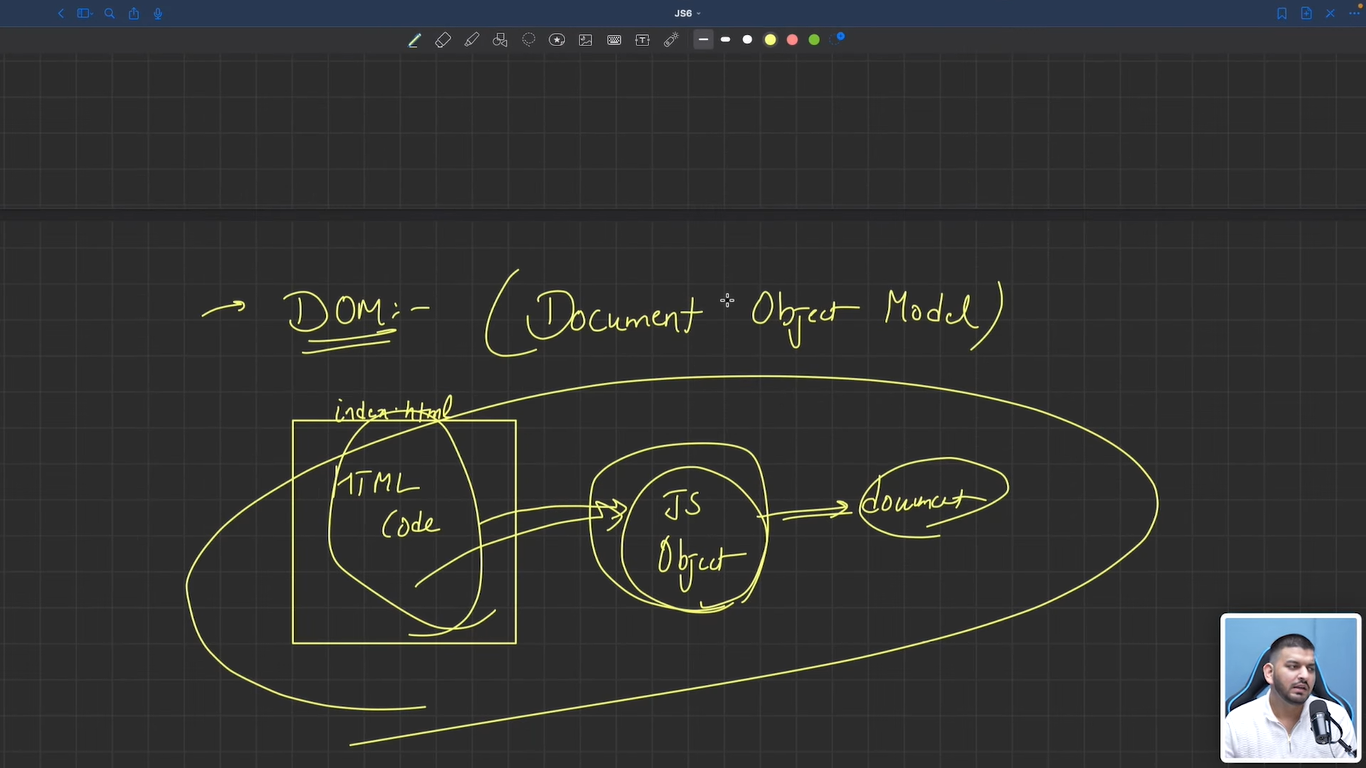 JS6
→ DOM:- (Document Object Model)
index.html
HTML
Code
JS
Object
document